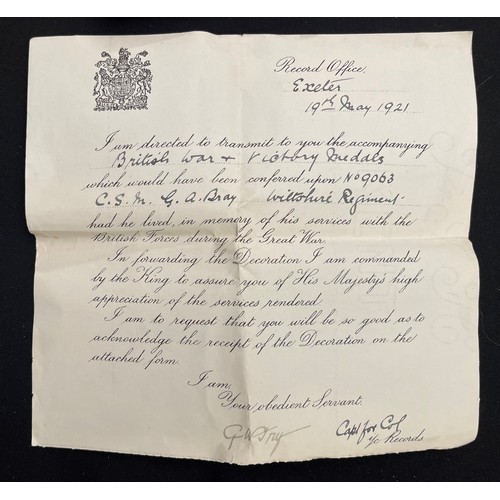 Record Office,
Exeter
19th May 1921
I am directed to transmit to you the accompanying
British War + Victory Medals
which would have been conferred upon No 9063
C.S.M. G.A. Bray Wiltshire Regiment.
had he lived, in memory of his services with the
British Forces during the Great War.
In forwarding the Decoration I am commanded
by the King to assure you of His Majesty's high
appreciation of the services rendered
I am to request that you will be so good as to
acknowledge the receipt of the Decoration on the
attached form.
I am,
Your obedient Servant.
Capt for Col
i/c Records